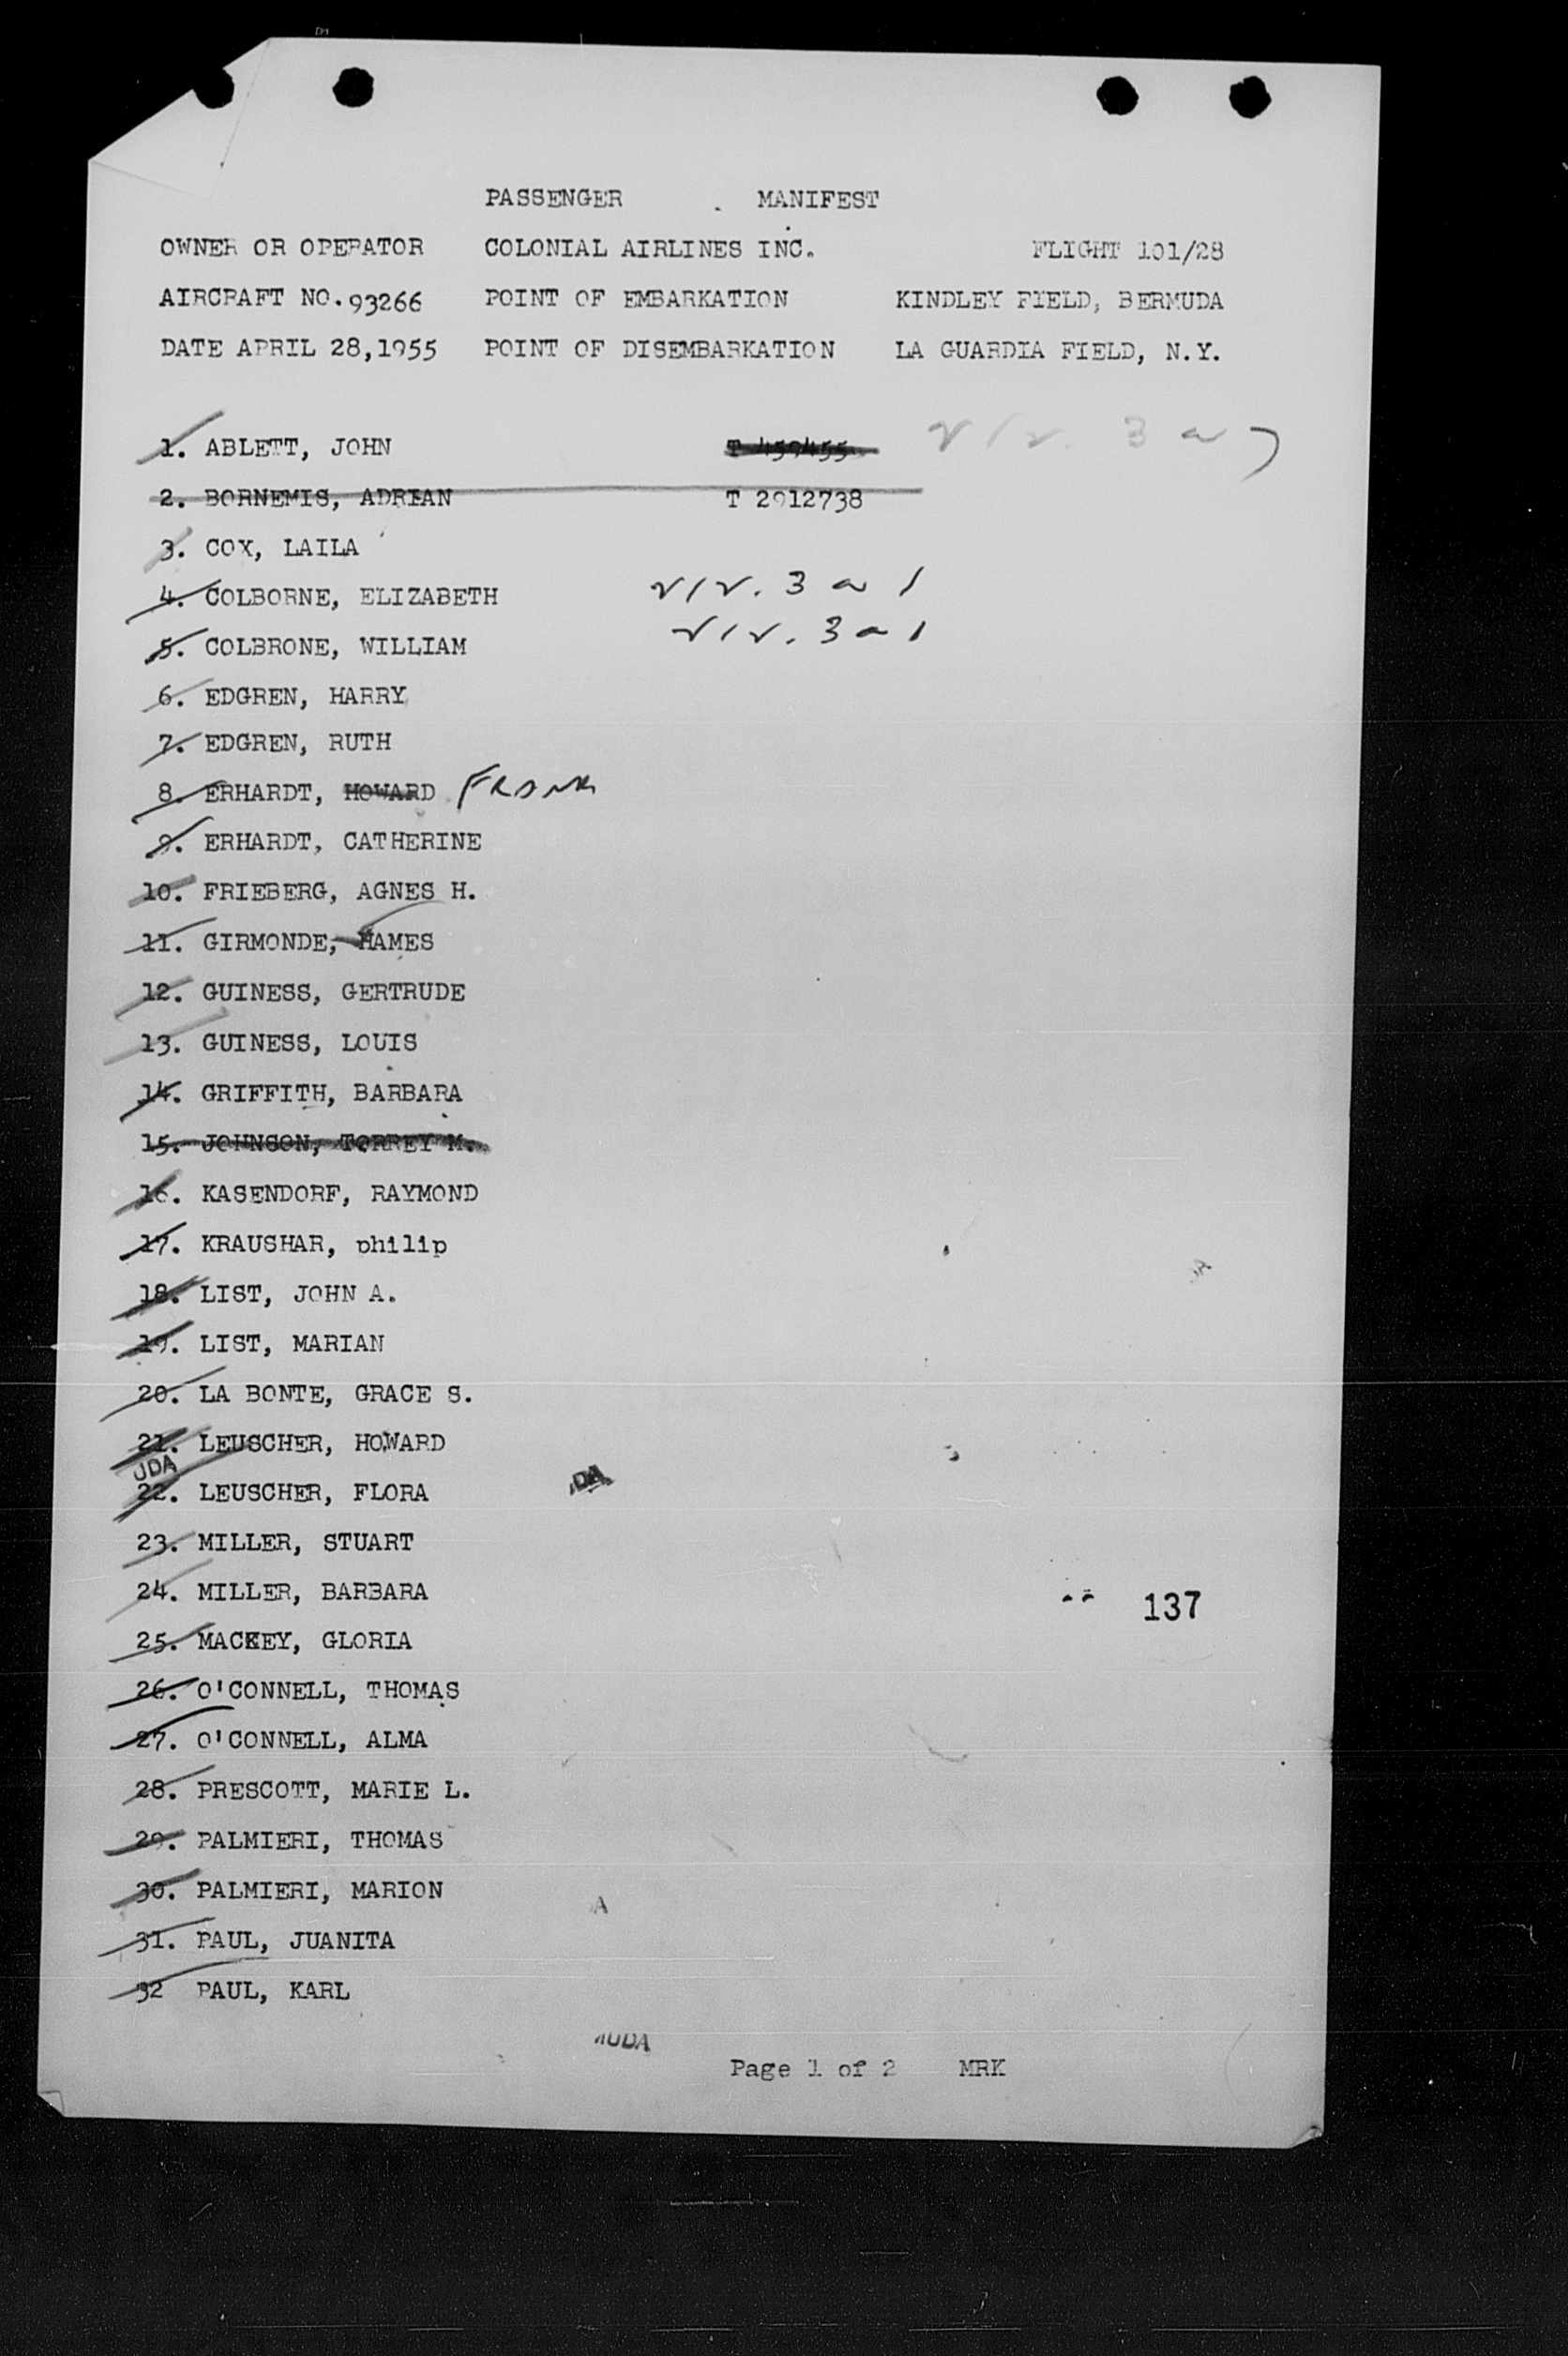 PASSENGER MANIFEST
OWNER OR OPERATOR COLONIAL AIRLINES INC. FLIGHT 101/28
AIRCRAFT NO. 93266 POINT OF EMBARKATION KINDLEY FIELD, BERMUDA
DATE APRIL 28,1955 POINT OF DISEMBARKATION LA GUARDIA FIELD, N.Y.
1. ABLETT, JOHN T 459455
2. BORNEMIS, ADRIAN T 2912738
3. COX, LAILA
4. COLBORNE, ELIZABETH
5. COLBRONE, WILLIAM
6. EDGREN, HARRY
7. EDGREN, RUTH
8. ERHARDT, HOWARD FRANK
9. ERHARDT, CATHERINE
10. FRIEBERG, AGNES H.
11. GIRMONDE, HAMES
12. GUINESS, GERTRUDE
13. GUINESS, LOUIS
14. GRIFFITH, BARBARA
15. JOHNSON, TORREY M.
16. KASENDORF, RAYMOND
17. KRAUSHAR, philip
18. LIST, JOHN A.
19. LIST, MARIAN
20. LA BONTE, GRACE S.
21. LEUSCHER, HOWARD
UDA
22. LEUSCHER, FLORA DA
23. MILLER, STUART
24. MILLER, BARBARA
137
25. MACKEY, GLORIA
26. O'CONNELL, THOMAS
27. O'CONNELL, ALMA
28. PRESCOTT, MARIE L.
29. PALMIERI, THOMAS
30. PALMIERI, MARION
A
31. PAUL, JUANITA
32 PAUL, KARL
UDA
Page 1 of 2 MRK